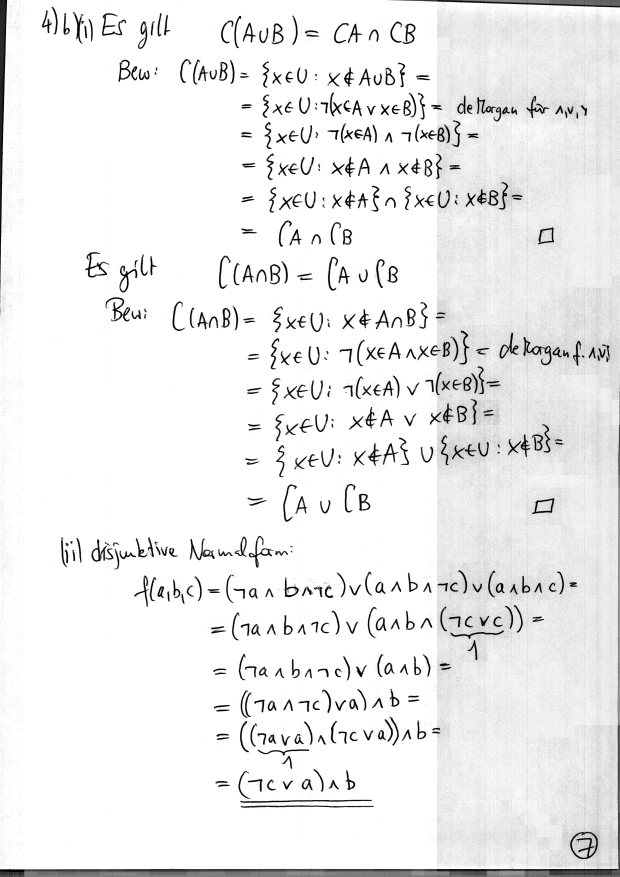 4)b)(i) Es gilt C(A∪B) = CA ∩ CB
Bew: C(A∪B) = {x∈U: x∉A∪B} =
= {x∈U: ¬(x∈A ∨ x∈B)} = de Morgan für ∧,∨,¬
= {x∈U: ¬(x∈A) ∧ ¬(x∈B)} =
= {x∈U: x∉A ∧ x∉B} =
= {x∈U: x∉A} ∩ {x∈U: x∉B} =
= CA ∩ CB □
Es gilt C(A∩B) = CA ∪ CB
Bew: C(A∩B) = {x∈U: x∉A∩B} =
= {x∈U: ¬(x∈A ∧ x∈B)} = de Morgan f. ∧,∨,¬
= {x∈U: ¬(x∈A) ∨ ¬(x∈B)} =
= {x∈U: x∉A ∨ x∉B} =
= {x∈U: x∉A} ∪ {x∈U: x∉B} =
= CA ∪ CB □
(ii) disjunktive Normalform:
f(a,b,c) = (¬a ∧ b ∧ ¬c) ∨ (a ∧ b ∧ ¬c) ∨ (a ∧ b ∧ c) =
= (¬a ∧ b ∧ ¬c) ∨ (a ∧ b ∧ (¬c ∨ c)) =
1
= (¬a ∧ b ∧ ¬c) ∨ (a ∧ b) =
= ((¬a ∧ ¬c) ∨ a) ∧ b =
= ((¬a ∨ a) ∧ (¬c ∨ a)) ∧ b =
1
= (¬c ∨ a) ∧ b
7